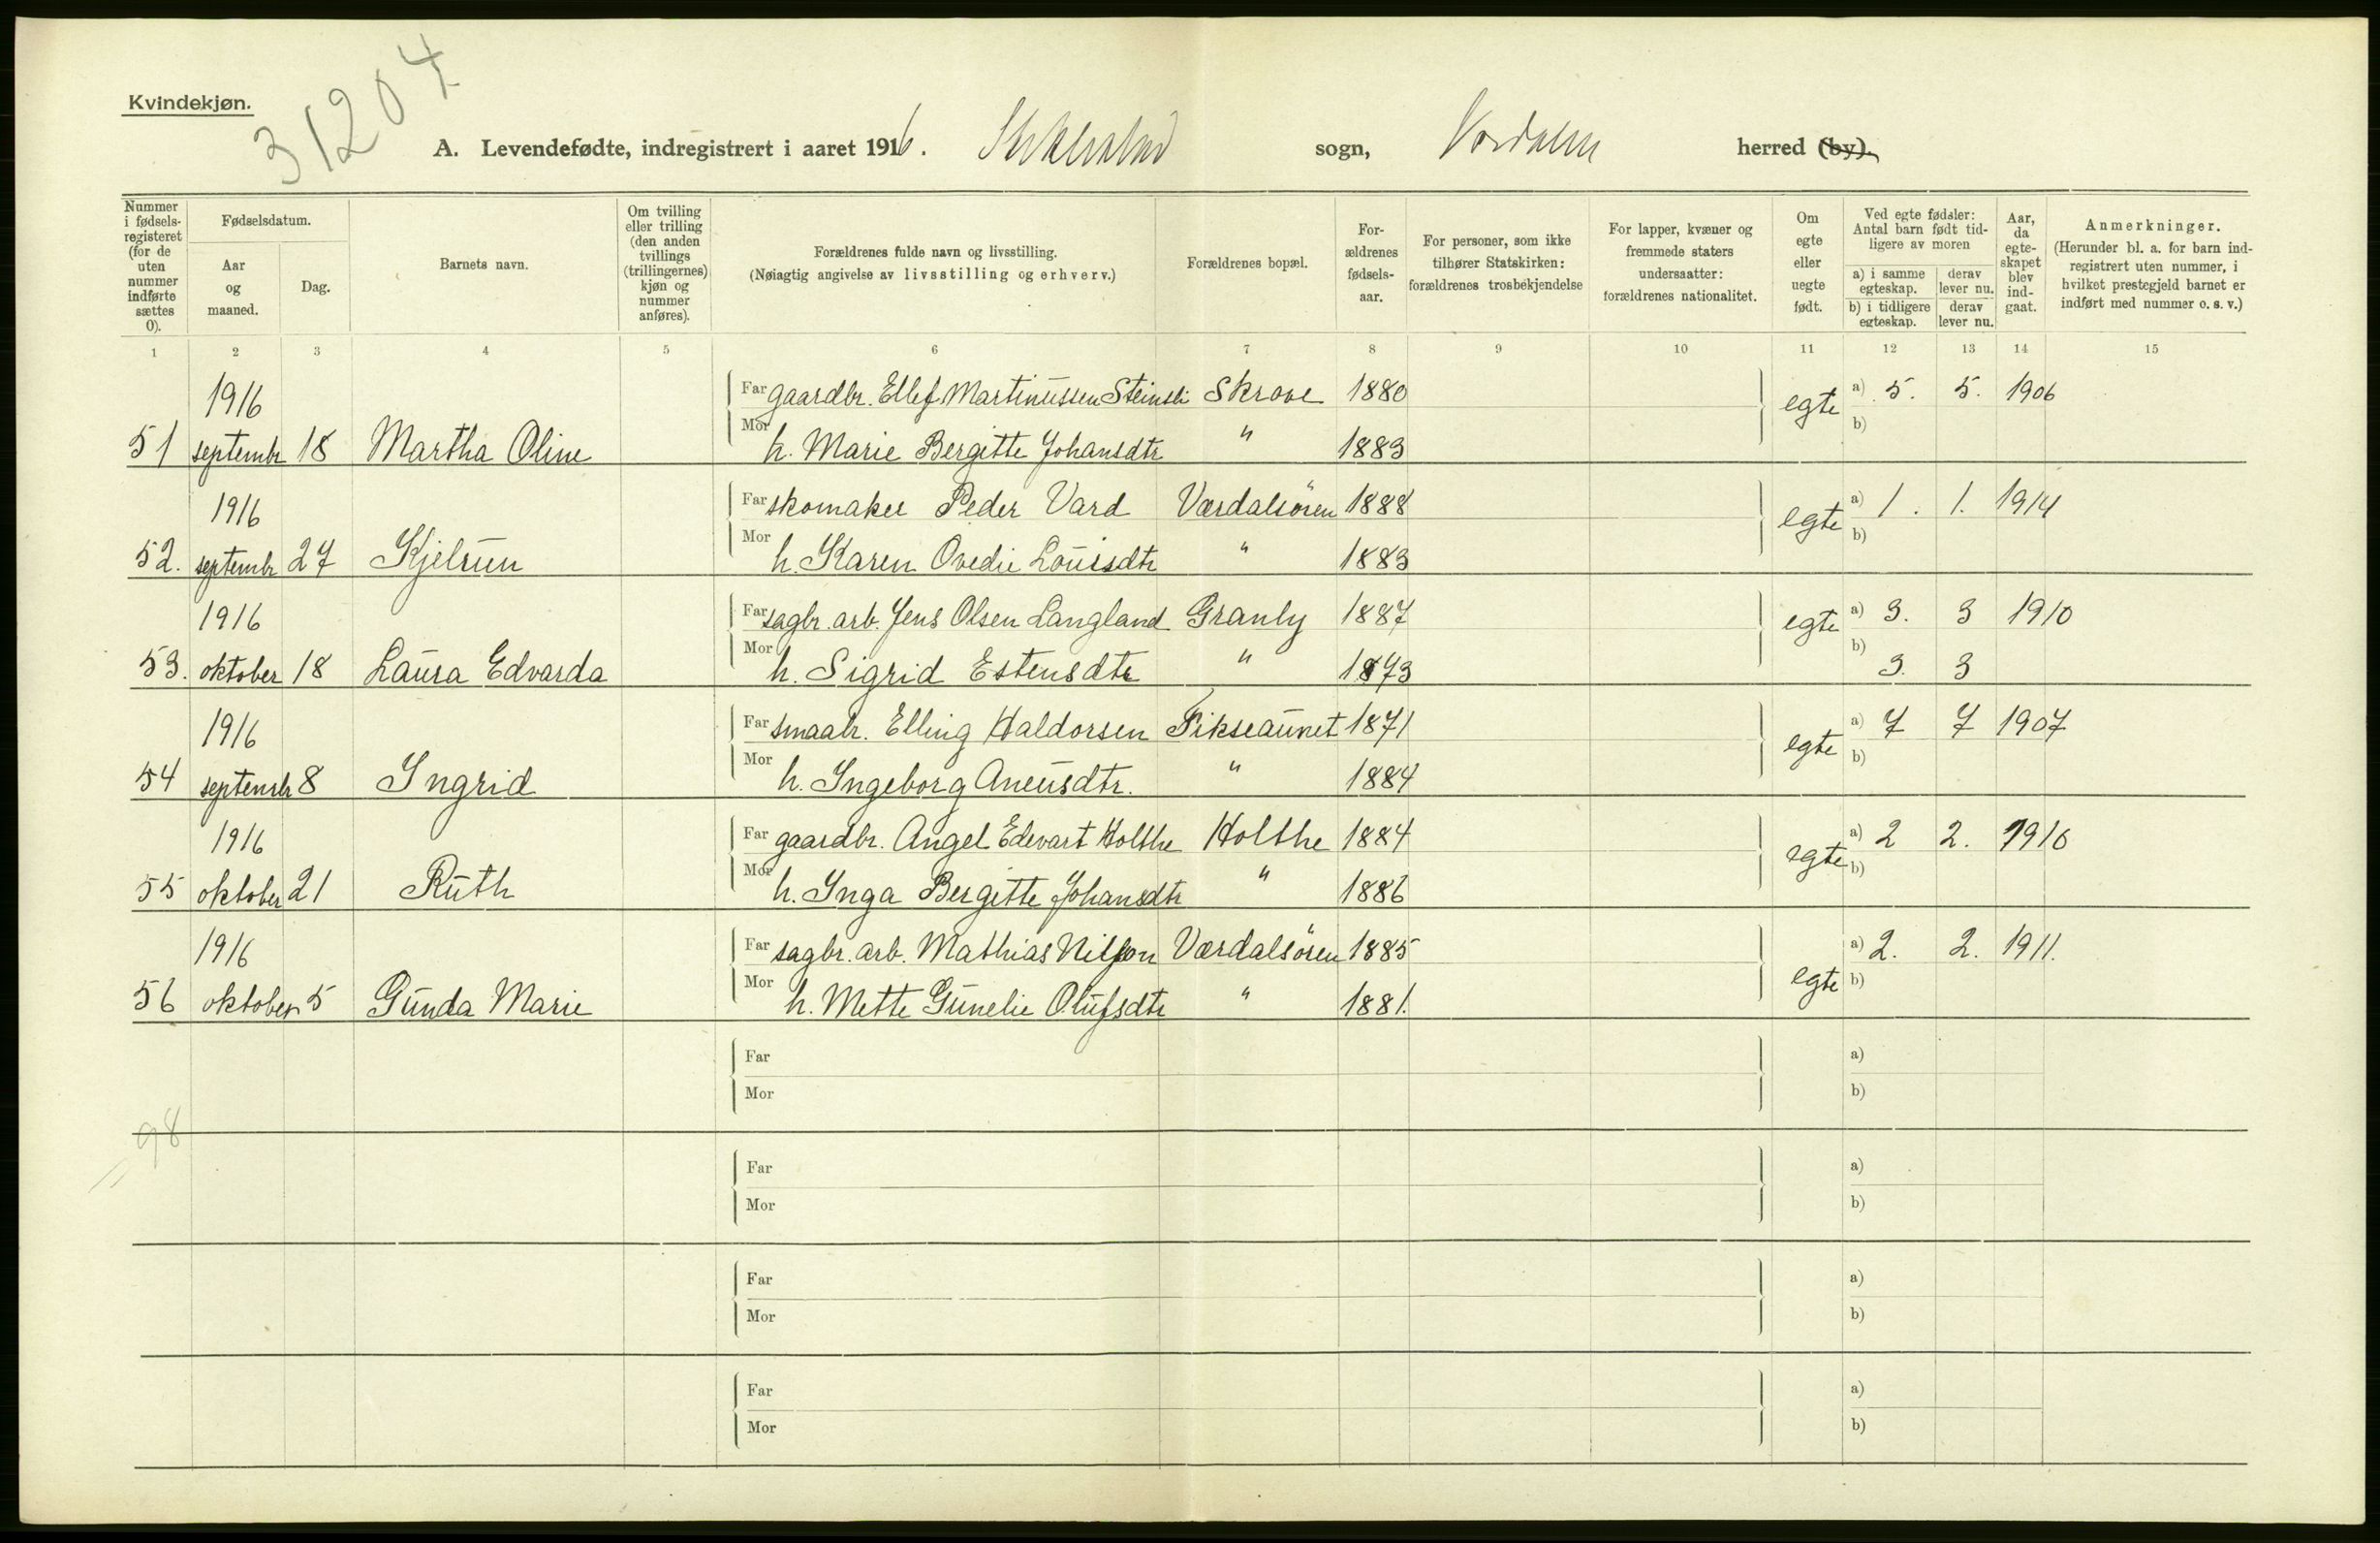 Kvindekjøn.
31204
A. Levendefødte, indregistrert i aaret 1916. Stiklestad sogn, Værdalen herred (by).
Nummer i fødsels-registeret (for de uten nummer indførte sættes 0).
Fødselsdatum.
Aar og maaned.
Dag.
Barnets navn.
Om tvilling eller trilling (den anden tvillings (trillingernes) kjøn og nummer anføres).
Forældrenes fulde navn og livsstilling.
(Nøiagtig angivelse av livsstilling og erhverv.)
Forældrenes bopæl.
For-ældrenes fødsels-aar.
For personer, som ikke tilhører Statskirken: forældrenes trosbekjendelse
For lapper, kvæner og fremmede staters undersaatter: forældrenes nationalitet.
Om egte eller uegte født.
Ved egte fødsler: Antal barn født tid-ligere av moren
a) i samme egteskap. derav lever nu.
b) i tidligere egteskap. derav lever nu.
Aar, da egte-skapet blev ind-gaat.
Anmerkninger.
(Herunder bl. a. for barn ind-registrert uten nummer, i hvilket prestegjeld barnet er indført med nummer o. s. v.)
1 2 3 4 5 6 7 8 9 10 11 12 13 14 15
1916 Far gaardbr. Ellef Martinussen Steinsli Skrove 1880 egte a) 5. 5. 1906
51 septembr 18 Martha Oline Mor h. Marie Bergitte Johansdtr " 1883 b)
1916 Far skomaker Peder Vard Værdalsören 1888 egte a) 1. 1. 1914
52. septembr 27 Kjelrun Mor h. Karen Ovedie Louisdtr " 1883 b)
1916 Far sagbr. arb. Jens Olsen Langland Granly 1887 egte a) 3. 3 1910
53. oktober 18 Laura Edvarda Mor h. Sigrid Estensdtr " 1873 b) 3. 3
1916 Far smaabr. Elling Haldorsen Fikseaunet 1871 egte a) 7 7 1907
54 septembr 8 Ingrid Mor h. Ingeborg Aneusdtr. " 1884 b)
1916 Far gaardbr. Angel Edevart Holthe Holthe 1884 egte a) 2 2. 1910
55 oktober 21 Ruth Mor h. Inga Bergitte Johansdtr " 1886 b)
1916 Far sagbr. arb. Mathias Nilson Værdalsören 1885 egte a) 2. 2. 1911.
56 oktober 5 Gunda Marie Mor h. Mette Gunelie Olufsdtr " 1881. b)
Far a)
Mor b)
98
Far a)
Mor b)
Far a)
Mor b)
Far a)
Mor b)